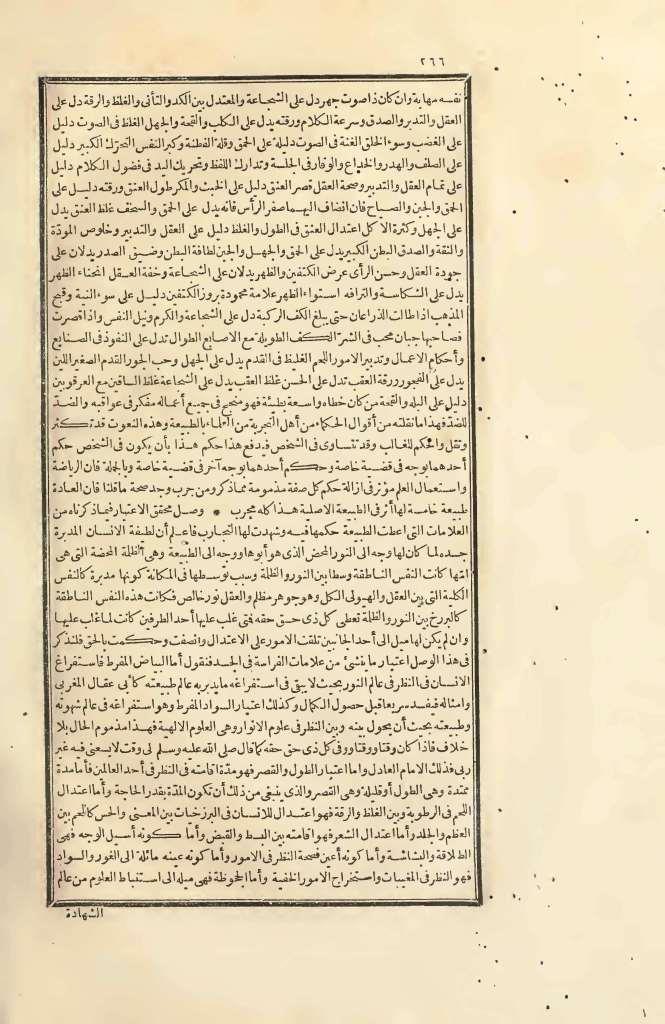 ٢٦٦
نفسه مهابة وان كان ذا صوت جهير دل على الشجاعة والمعتدل بين الكد والتأنى والغلظ والرقة دل على
العقل والتدبر والصدق وسرعة الكلام ورقته يدل على الكلب والقحة والجهل الغلظ فى الصوت دليل
على الغضب وسوء الخلق الغنة فى الصوت دليله على الحمق وقلة الفطنة وكبر النفس التحرك الكبير دليل
على الصلف والهدر والخداع والوقار فى الجلسة وتدارك اللفظ وتحريك اليد فى فضول الكلام دليل
على تمام العقل والتدبير وصحة العقل قصر العنق دليل على الخبث والمكر طول العنق ورقته دليل على
الحمق والجبن والصياح فان انضاف اليهما صغر الرأس فانه يدل على الحمق والسخف غلظ العنق يدل
على الجهل وكثرة الاكل اعتدال العنق فى الطول والغلظ دليل على العقل والتدبير وخلوص المودّة
والثقة والصدق البطن الكبير يدل على الحمق والجهل والجبن لطافة البطن وضيق الصدر يدلان على
جودة العقل وحسن الرأى عرض الكتفين والظهر يدلان على الشجاعة وخفة العقل انحناء الظهر
يدل على الشكاسة والترافه استواء الظهر علامة محمودة بروز الكتفين دليل على سوء النية وقبح
المذهب اذا طالت الذراعان حتى يبلغ الكف الركبة دل على الشجاعة والكرم ونبل النفس واذا قصرت
فصاحبها جبان محب فى الشرّ الكف الطويلة مع الاصابع الطوال تدل على النفوذ فى الصنايع
وأحكام الاعمال وتدبير الامور اللحم الغليظ فى القدم يدل على الجهل وحب الجور القدم الصغير اللين
يدل على الفجور ورقة العقب تدل على الحسن غلظ العقب يدل على الشجاعة غلظ الساقين مع العرقوبين
دليل على البله والقحة من كان خطاه واسعة بطيئة فهو منجح فى جميع أعماله مفكر فى عواقبه والضدّ
للضدّ فهذا ما نقلته من أقوال الحكماء من أهل التجربة من العلماء بالطبيعة وهذه النعوت قد تكثر
وتقل والحكم للغالب وقد تتساوى فى الشخص فيدفع هذا حكم هذا بأن يكون فى الشخص حكم
أحدهما بوجه فى قضية خاصة وحكم أحدهما بوجه آخر فى قضية خاصة وبالجملة فان الرياضة
واستعمال العلم مؤثر فى ازالة حكم كل صفة مذمومة مما ذكر ومن جرب وجد صحة ما قلنا فان العادة
طبيعة خامسة لها أثر فى الطبيعة الاصلية هذا كله مجرب * وصل محقق الاعتبار فيما ذكرناه من
العلامات التى اعطت الطبيعة حكمها فيه وشهدت لها التجارب فاعلم أن لطيفة الانسان المدبرة
جسده لما كان لها وجه الى النور المحض الذى هو أبوها ووجه الى الطبيعة وهى الظلمة المحضة التى هى
امّها كانت النفس الناطقة وسطا بين النور والظلمة وسبب توسطها فى المكانة كونها مدبرة كالنفس
الكلية التى بين العقل والهيولى الكل وهو جوهر مظلم والعقل نور خالص فكانت هذه النفس الناطقة
كالبرزخ بين النور والظلمة تعطى كل ذى حق حقه فمتى غلب عليها أحد الطرفين كانت لما غلب عليها
وان لم يكن لها ميل الى أحد الجانبين تلقت الامور على الاعتدال وانصفت وحكمت بالحق فلنذكر
فى هذا الوصل اعتبار ما يمشى من علامات الفراسة فى الجسد فنقول أما البياض المفرط فاستفراغ
الانسان فى النظر فى عالم النور بحيث لا يبقى فى استفراغه ما يدبر به عالم طبيعته كأبى عقال المغربى
وامثاله فيفسد سريعا قبل حصول الكمال وكذلك اعتبار السواد المفرط وهو استفراغه فى عالم شهوته
وطبيعته بحيث أن يحول بينه وبين النظر فى علوم الانوار وهى العلوم الالهية فهذا مذموم الحال بلا
خلاف فاذا كان وقتا ووقتا ووفى كل ذى حق حقه كما قال صلى الله عليه وسلم لى وقت لا يسعنى فيه غير
ربى فذلك الامام العادل واما اعتبار الطول والقصر فهو مدّة اقامته فى النظر فى أحد العالمين فأما مدة
ممتدة وهى الطول أو قليلة وهى القصر والذى ينبغى من ذلك أن تكون المدّة بقدر الحاجة وأما اعتدال
اللحم فى الرطوبة وبين الغلظ والرقة فهو اعتدال للانسان فى البرزخيات بين المعنى والحس كاللحم بين
العظم والجلد وأما اعتدال الشعر فهو اقامته بين البسط والقبض وأما كونه أسيل الوجه فهى
الطلاقة والبشاشة وأما كونه أعين فصحة النظر فى الامور وأما كونه عينه مائلة الى الغور والسواد
فهو النظر فى المغيبات واستخراج الامور الخفية وأما الجحوظة فهى ميله الى استنباط العلوم من عالم
الشهادة